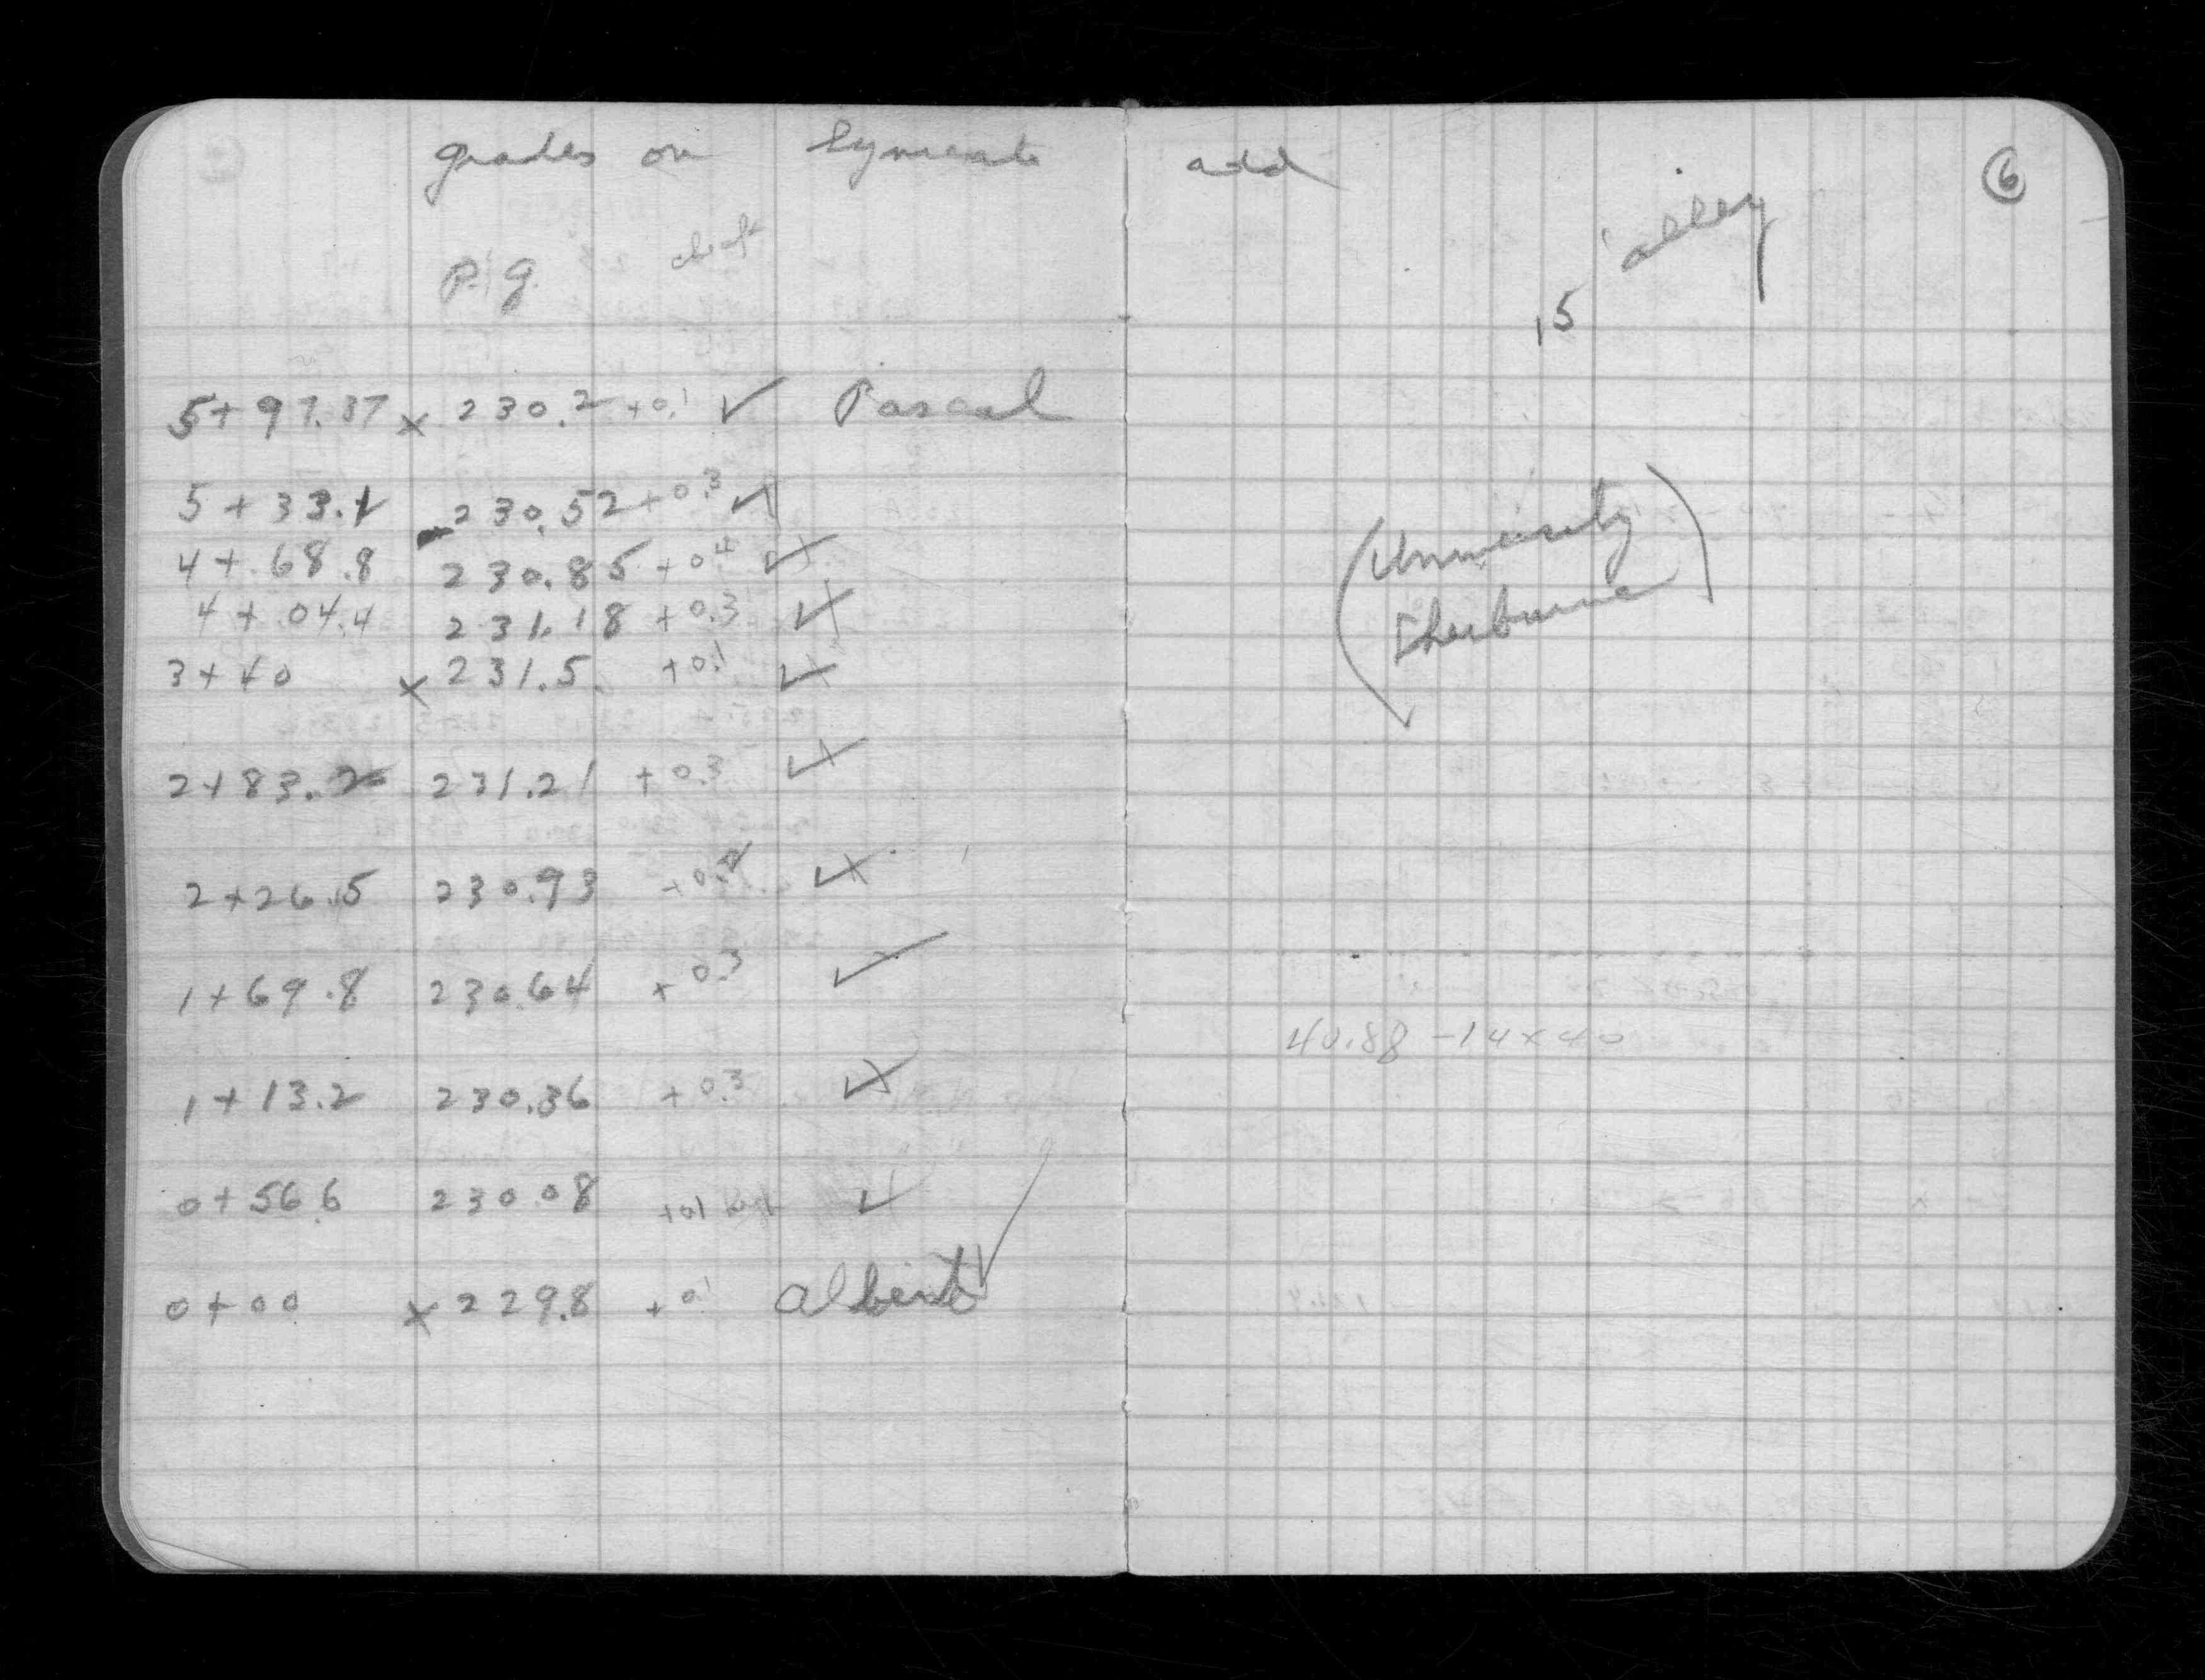 grades on Syndicate add
6
P.G. chaft
15' alley
5+97.37 x 230.2 +0.1 ✓ Pascal
5+33.1 230.52 +0.3 ✓
4+68.8 230.85 +0.4 ✓
4+04.4 231.18 +0.3 ✓
3+40 x 231.5 +0.1 ✓
(University
Sherburne)
2+83.2 231.21 +0.3 ✓
2+26.5 230.93 ✓
1+69.8 230.64 +0.3 ✓
40.88
1+13.2 230.36 +0.3 ✓
0+56.6 230.08 +01 ✓
0+00 x 229.8 +0.1 Albert ✓